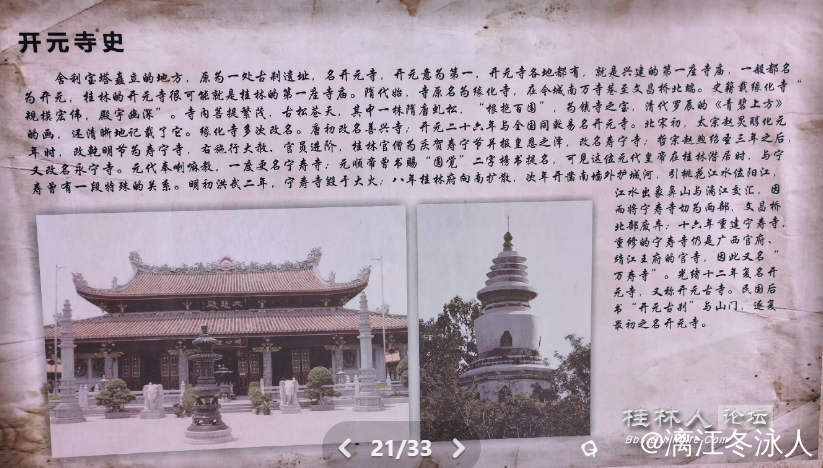 开元寺史
舍利宝塔矗立的地方，原为一处古刹遗址，名开元寺，开元意为第一，开元寺各地都有，就是兴建的第一座寺庙，一般都名
为开元，桂林的开元寺很可能就是桂林的第一座寺庙。隋代始，寺原名为缘化寺，在今城南万寿巷至文昌桥北端。史籍载缘化寺“
规模宏伟，殿宇幽深”。寺内菩提繁茂，古松苍天，其中一株隋唐虬松，“根抱百围”，为镇寺之宝，清代罗辰的《青碧上方》
的画，还清晰地记载了它。缘化寺多次改名。唐初改名善兴寺；开元二十六年与全国同教易名开元寺。北宋初，太宗赵炅醇化元
年时，改乾明节为寿宁节，右施行大赦、官员进阶，桂林官僧为庆贺寿宁节并报皇恩之泽，改名寿宁寺；哲宗赵煦绍圣三年之后，
又改名永宁寺。元代奉喇嘛教，一度更名宁寿寺；元顺帝曾书赐“圆觉”二字榜书提名，可见这位元代皇帝在桂林潜居时，与宁
寿曾有一段特殊的关系。明初洪武二年，宁寿寺毁于大火；八年桂林府向南扩散，次年开凿南墙外护城河，引桃花江水做阳江，
江水出象鼻山与漓江交汇，因
而将宁寿寺切为两部，文昌桥
北部废弃；十六年重建宁寿寺，
重修的宁寿寺仍是广西官府、
靖江王府的官寺，因此又名“
万寿寺”。光绪十二年复名开
元寺，又称开元古寺。民国后
书“开元古刹”与山门，遂复
最初之名开元寺。
大悲殿
桂林人论坛
21/33
@漓江冬泳人